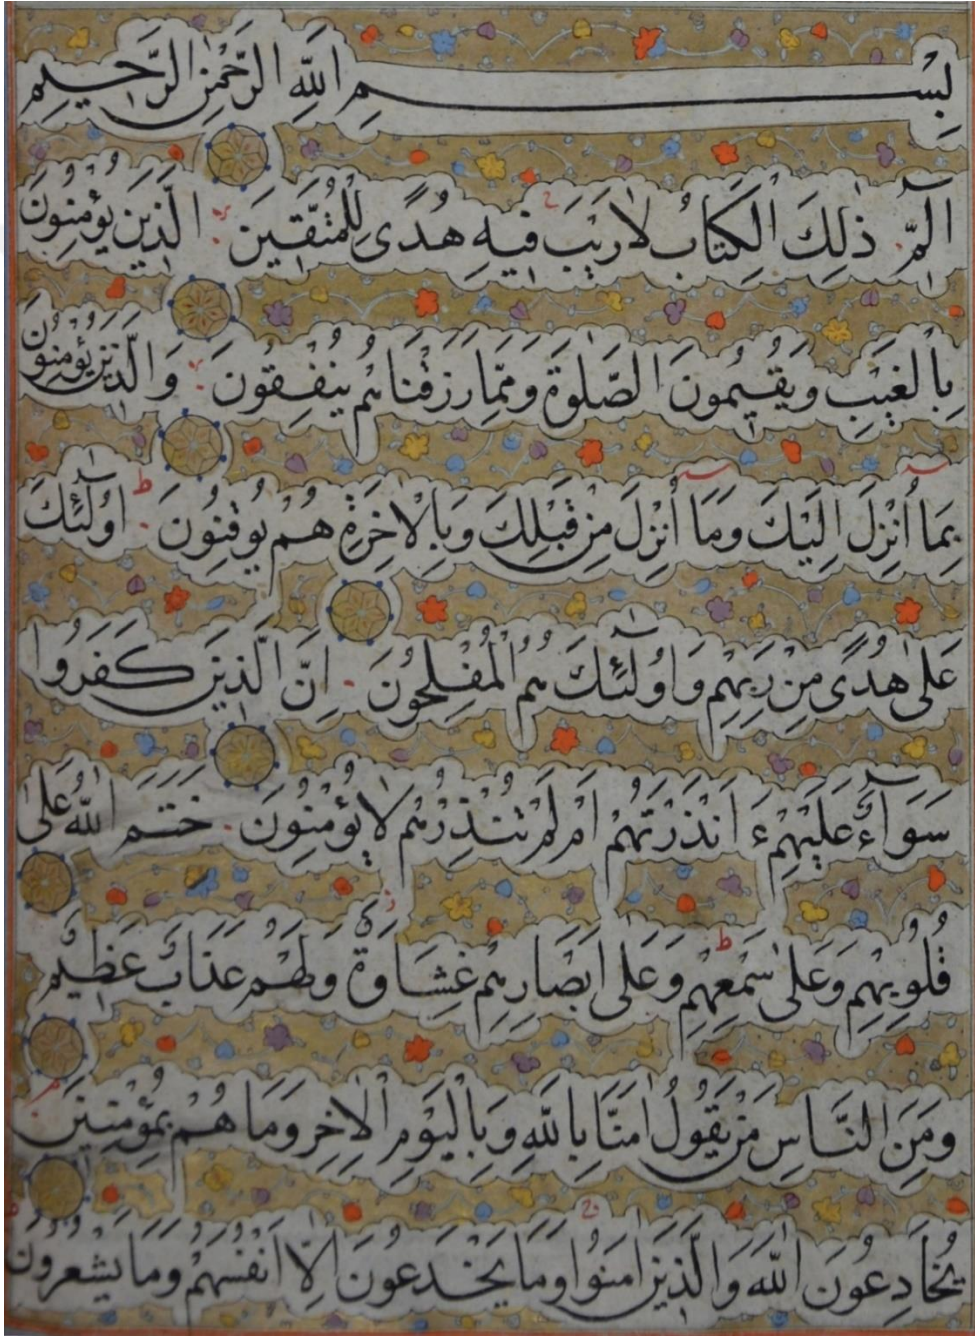 بِسْمِ اللّٰهِ الرَّحْمٰنِ الرَّحِيمِ
الٓمّٓ ذٰلِكَ الْكِتَابُ لَا رَيْبَ فِيهِ هُدًى لِلْمُتَّقِينَ الَّذِينَ يُؤْمِنُونَ
بِالْغَيْبِ وَيُقِيمُونَ الصَّلٰوةَ وَمِمَّا رَزَقْنَاهُمْ يُنْفِقُونَ وَالَّذِينَ يُؤْمِنُونَ
بِمَا أُنْزِلَ إِلَيْكَ وَمَا أُنْزِلَ مِنْ قَبْلِكَ وَبِالْاٰخِرَةِ هُمْ يُوقِنُونَ اُولٰٓئِكَ
عَلٰى هُدًى مِنْ رَبِّهِمْ وَاُولٰٓئِكَ هُمُ الْمُفْلِحُونَ اِنَّ الَّذِينَ كَفَرُوا
سَوَآءٌ عَلَيْهِمْ ءَاَنْذَرْتَهُمْ اَمْ لَمْ تُنْذِرْهُمْ لَا يُؤْمِنُونَ خَتَمَ اللّٰهُ عَلٰى
قُلُوبِهِمْ وَعَلٰى سَمْعِهِمْ وَعَلٰى اَبْصَارِهِمْ غِشَاوَةٌ وَلَهُمْ عَذَابٌ عَظِيمٌ
وَمِنَ النَّاسِ مَنْ يَقُولُ اٰمَنَّا بِاللّٰهِ وَبِالْيَوْمِ الْاٰخِرِ وَمَا هُمْ بِمُؤْمِنِينَ
يُخَادِعُونَ اللّٰهَ وَالَّذِينَ اٰمَنُوا وَمَا يَخْدَعُونَ اِلَّا اَنْفُسَهُمْ وَمَا يَشْعُرُونَ